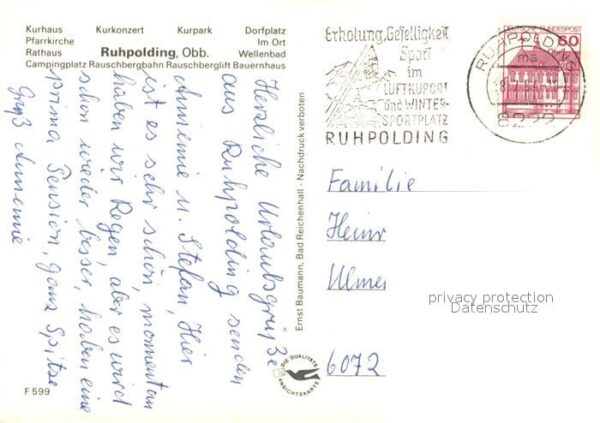 Kurhaus Kurkonzert Kurpark Dorfplatz
Pfarrkirche Im Ort
Rathaus Ruhpolding, Obb. Wellenbad
Campingplatz Rauschbergbahn Rauschberglift Bauernhaus
Herzliche Urlaubsgrüße
aus Ruhpolding senden
Annemie u. Stefan, Hier
ist es sehr schön, momentan
haben wir Regen, aber es wird
schon wieder besser, haben eine
prima Pension, ganz Spitze
Gruß Annemie
F 599
Ernst Baumann, Bad Reichenhall - Nachdruck verboten
DIE QUALITÄTS
ANSICHTSKARTE
Erholung, Geselligkeit
Sport
im
LUFTKURORT
und WINTER-
SPORTPLATZ
RUHPOLDING
RUHPOLDING
8222
DEUTSCHE BUNDESPOST
60
Familie
Heinr
Ulmer
privacy protection
Datenschutz
6072